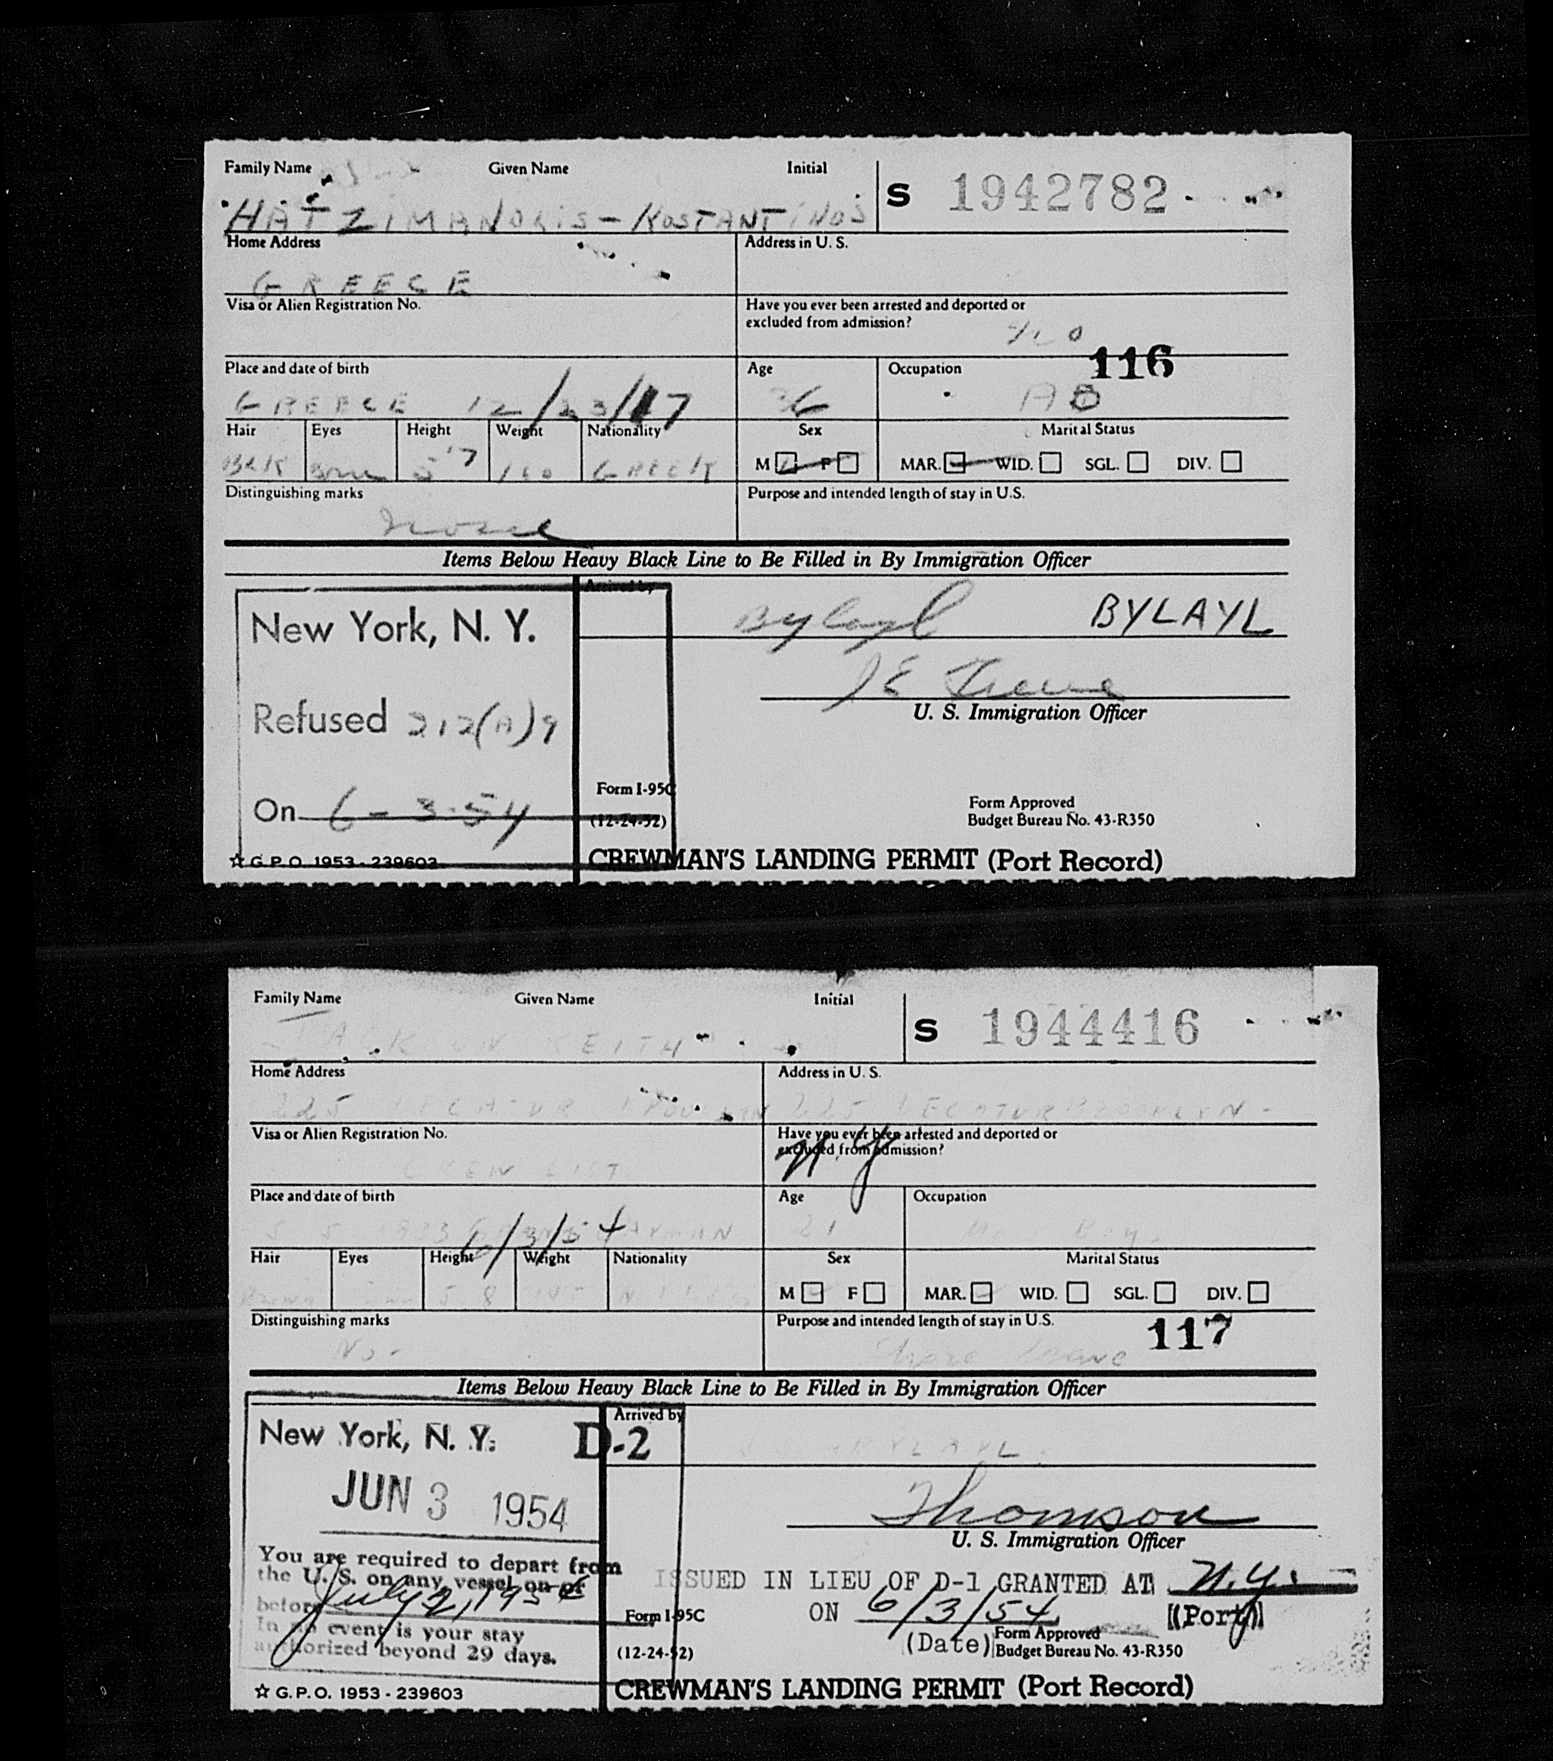 Family Name Given Name Initial
S 1942782
HATZIMANOLIS - KOSTANTINOS
Home Address Address in U. S.
GREECE
Visa or Alien Registration No. Have you ever been arrested and deported or
excluded from admission?
NO
116
Place and date of birth Age Occupation
GREECE 12/23/17 36 AB
Hair Eyes Height Weight Nationality Sex Marital Status
BLK Brn 5'7 160 GREEK M F MAR. WID. SGL. DIV.
Distinguishing marks Purpose and intended length of stay in U.S.
None
Items Below Heavy Black Line to Be Filled in By Immigration Officer
Arrived by
New York, N. Y. Bylayl BYLAYL
U. S. Immigration Officer
Refused 212(A)9
Form I-95C Form Approved
On 6-3-54 (12-24-52) Budget Bureau No. 43-R350
☆ G.P.O. 1953 - 239603 CREWMAN'S LANDING PERMIT (Port Record)
Family Name Given Name Initial
S 1944416
KEITH
Home Address Address in U. S.
225 225 DECATUR BROOKLYN
Visa or Alien Registration No. Have you ever been arrested and deported or
excluded from admission?
N.Y
CREW LIST
Place and date of birth Age Occupation
6/3/54 21
Hair Eyes Height Weight Nationality Sex Marital Status
5 8 145 M F MAR. WID. SGL. DIV.
Distinguishing marks Purpose and intended length of stay in U.S.
117
No. Shore Leave
Items Below Heavy Black Line to Be Filled in By Immigration Officer
Arrived by
New York, N. Y. D-2 BYLAYL
JUN 3 1954
Thomson
U. S. Immigration Officer
You are required to depart from
the U. S. on any vessel on or
before July 2, 1954
In no event is your stay
authorized beyond 29 days.
ISSUED IN LIEU OF D-1 GRANTED AT N.Y.
Form I-95C ON 6/3/54 (Port)
(Date) Form Approved
(12-24-52) Budget Bureau No. 43-R350
☆ G.P.O. 1953 - 239603 CREWMAN'S LANDING PERMIT (Port Record)